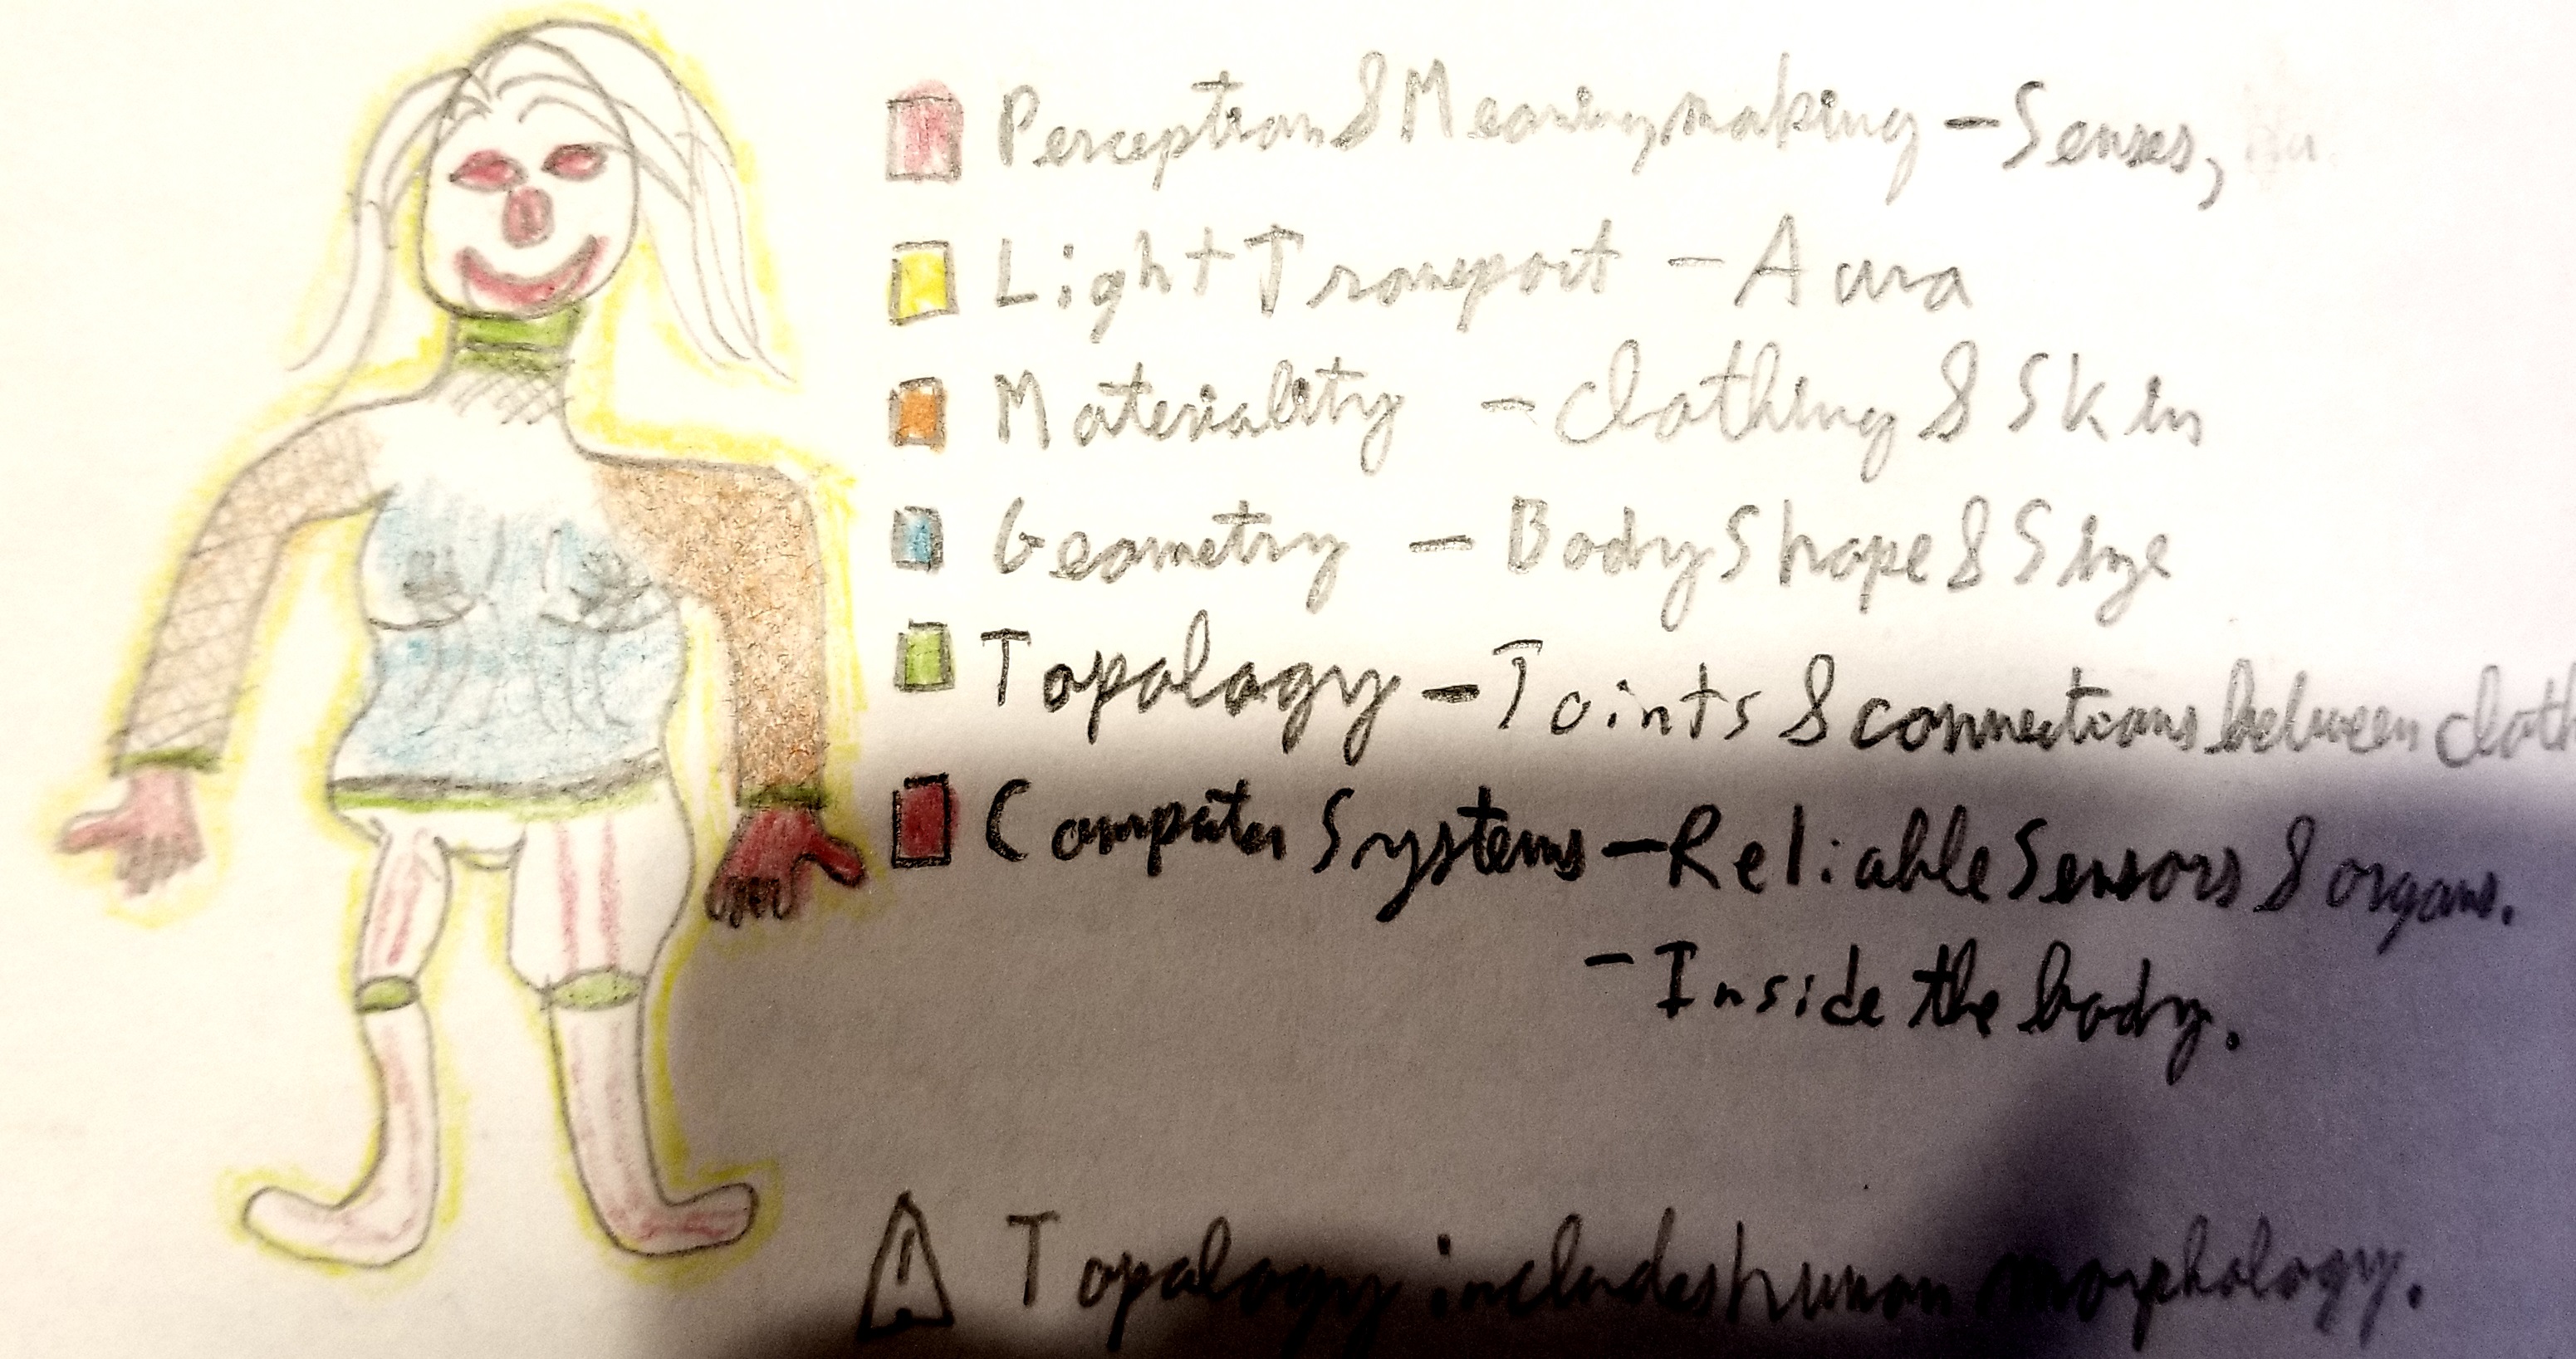 Perception & Meaningmaking - Senses,
Light Transport - Aura
Materiality - Clothing & Skin
Geometry - Body Shape & Size
Topology - Joints & connections between cloth
Computer Systems - Reliable Sensors & organs.
- Inside the body.
Topology includes human morphology.